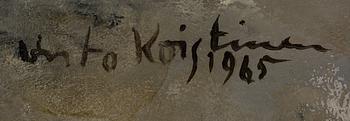 Unto Koistinen
1965